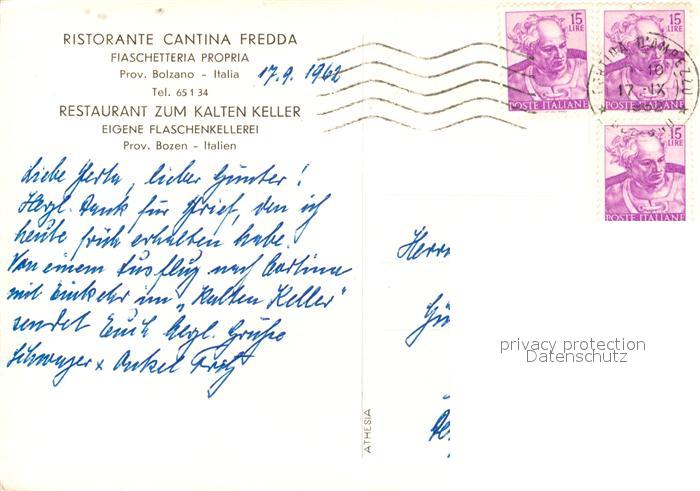 RISTORANTE CANTINA FREDDA
FIASCHETTERIA PROPRIA
Prov. Bolzano - Italia
Tel. 65134
RESTAURANT ZUM KALTEN KELLER
EIGENE FLASCHENKELLEREI
Prov. Bozen - Italien
17.9.1962
Liebe Herta, lieber Günter!
Herzl. Dank für Brief, den ich
heute früh erhalten habe.
Von einem Ausflug nach Cortina
mit Einkehr im „Kalten Keller"
sendet Euch herzl. Grüße
Schwager + Onkel Fritz
15
LIRE
POSTE ITALIANE
15
LIRE
POSTE ITALIANE
15
LIRE
POSTE ITALIANE
CORTINA D'AMPEZZO
10
17 IX
Herrn
Gü
privacy protection
Datenschutz
ATHESIA